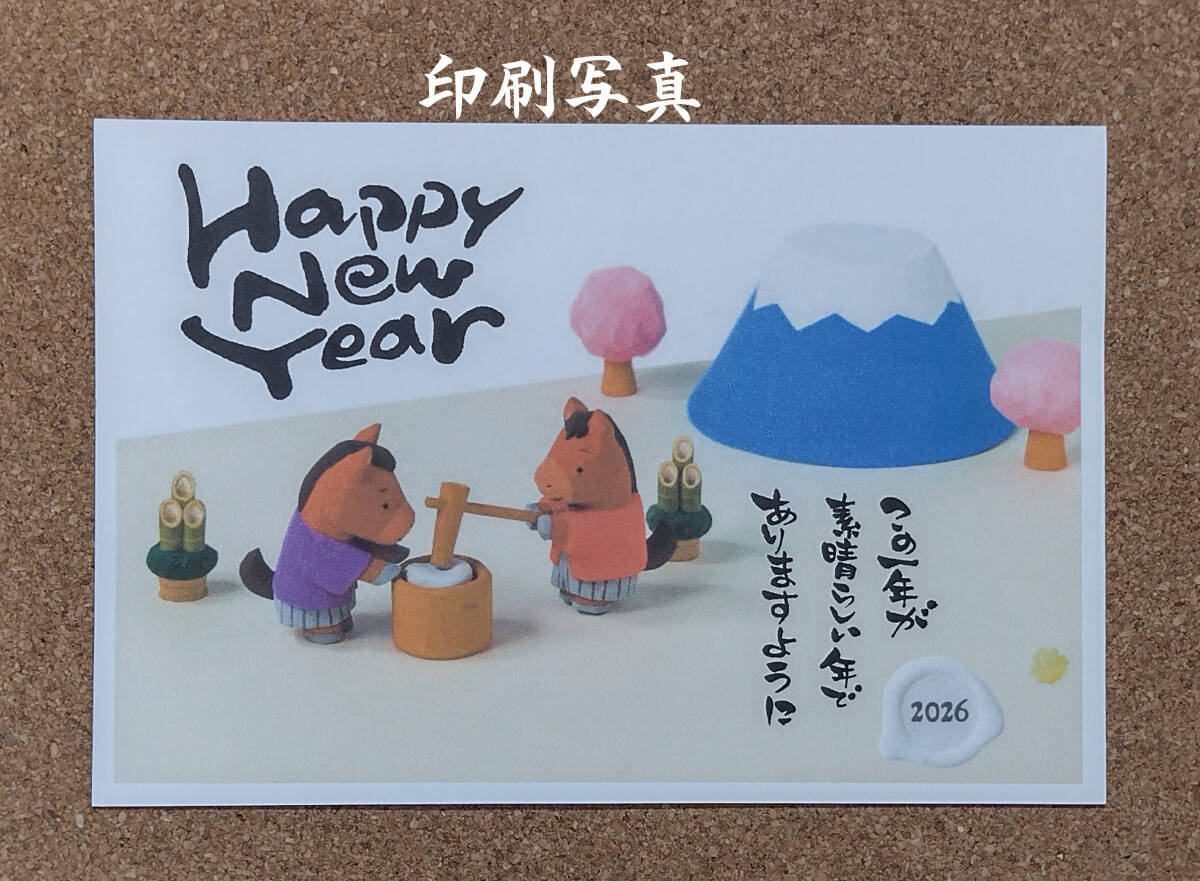 印刷写真
Happy
New
Year
この一年が
素晴らしい年で
ありますように
2026